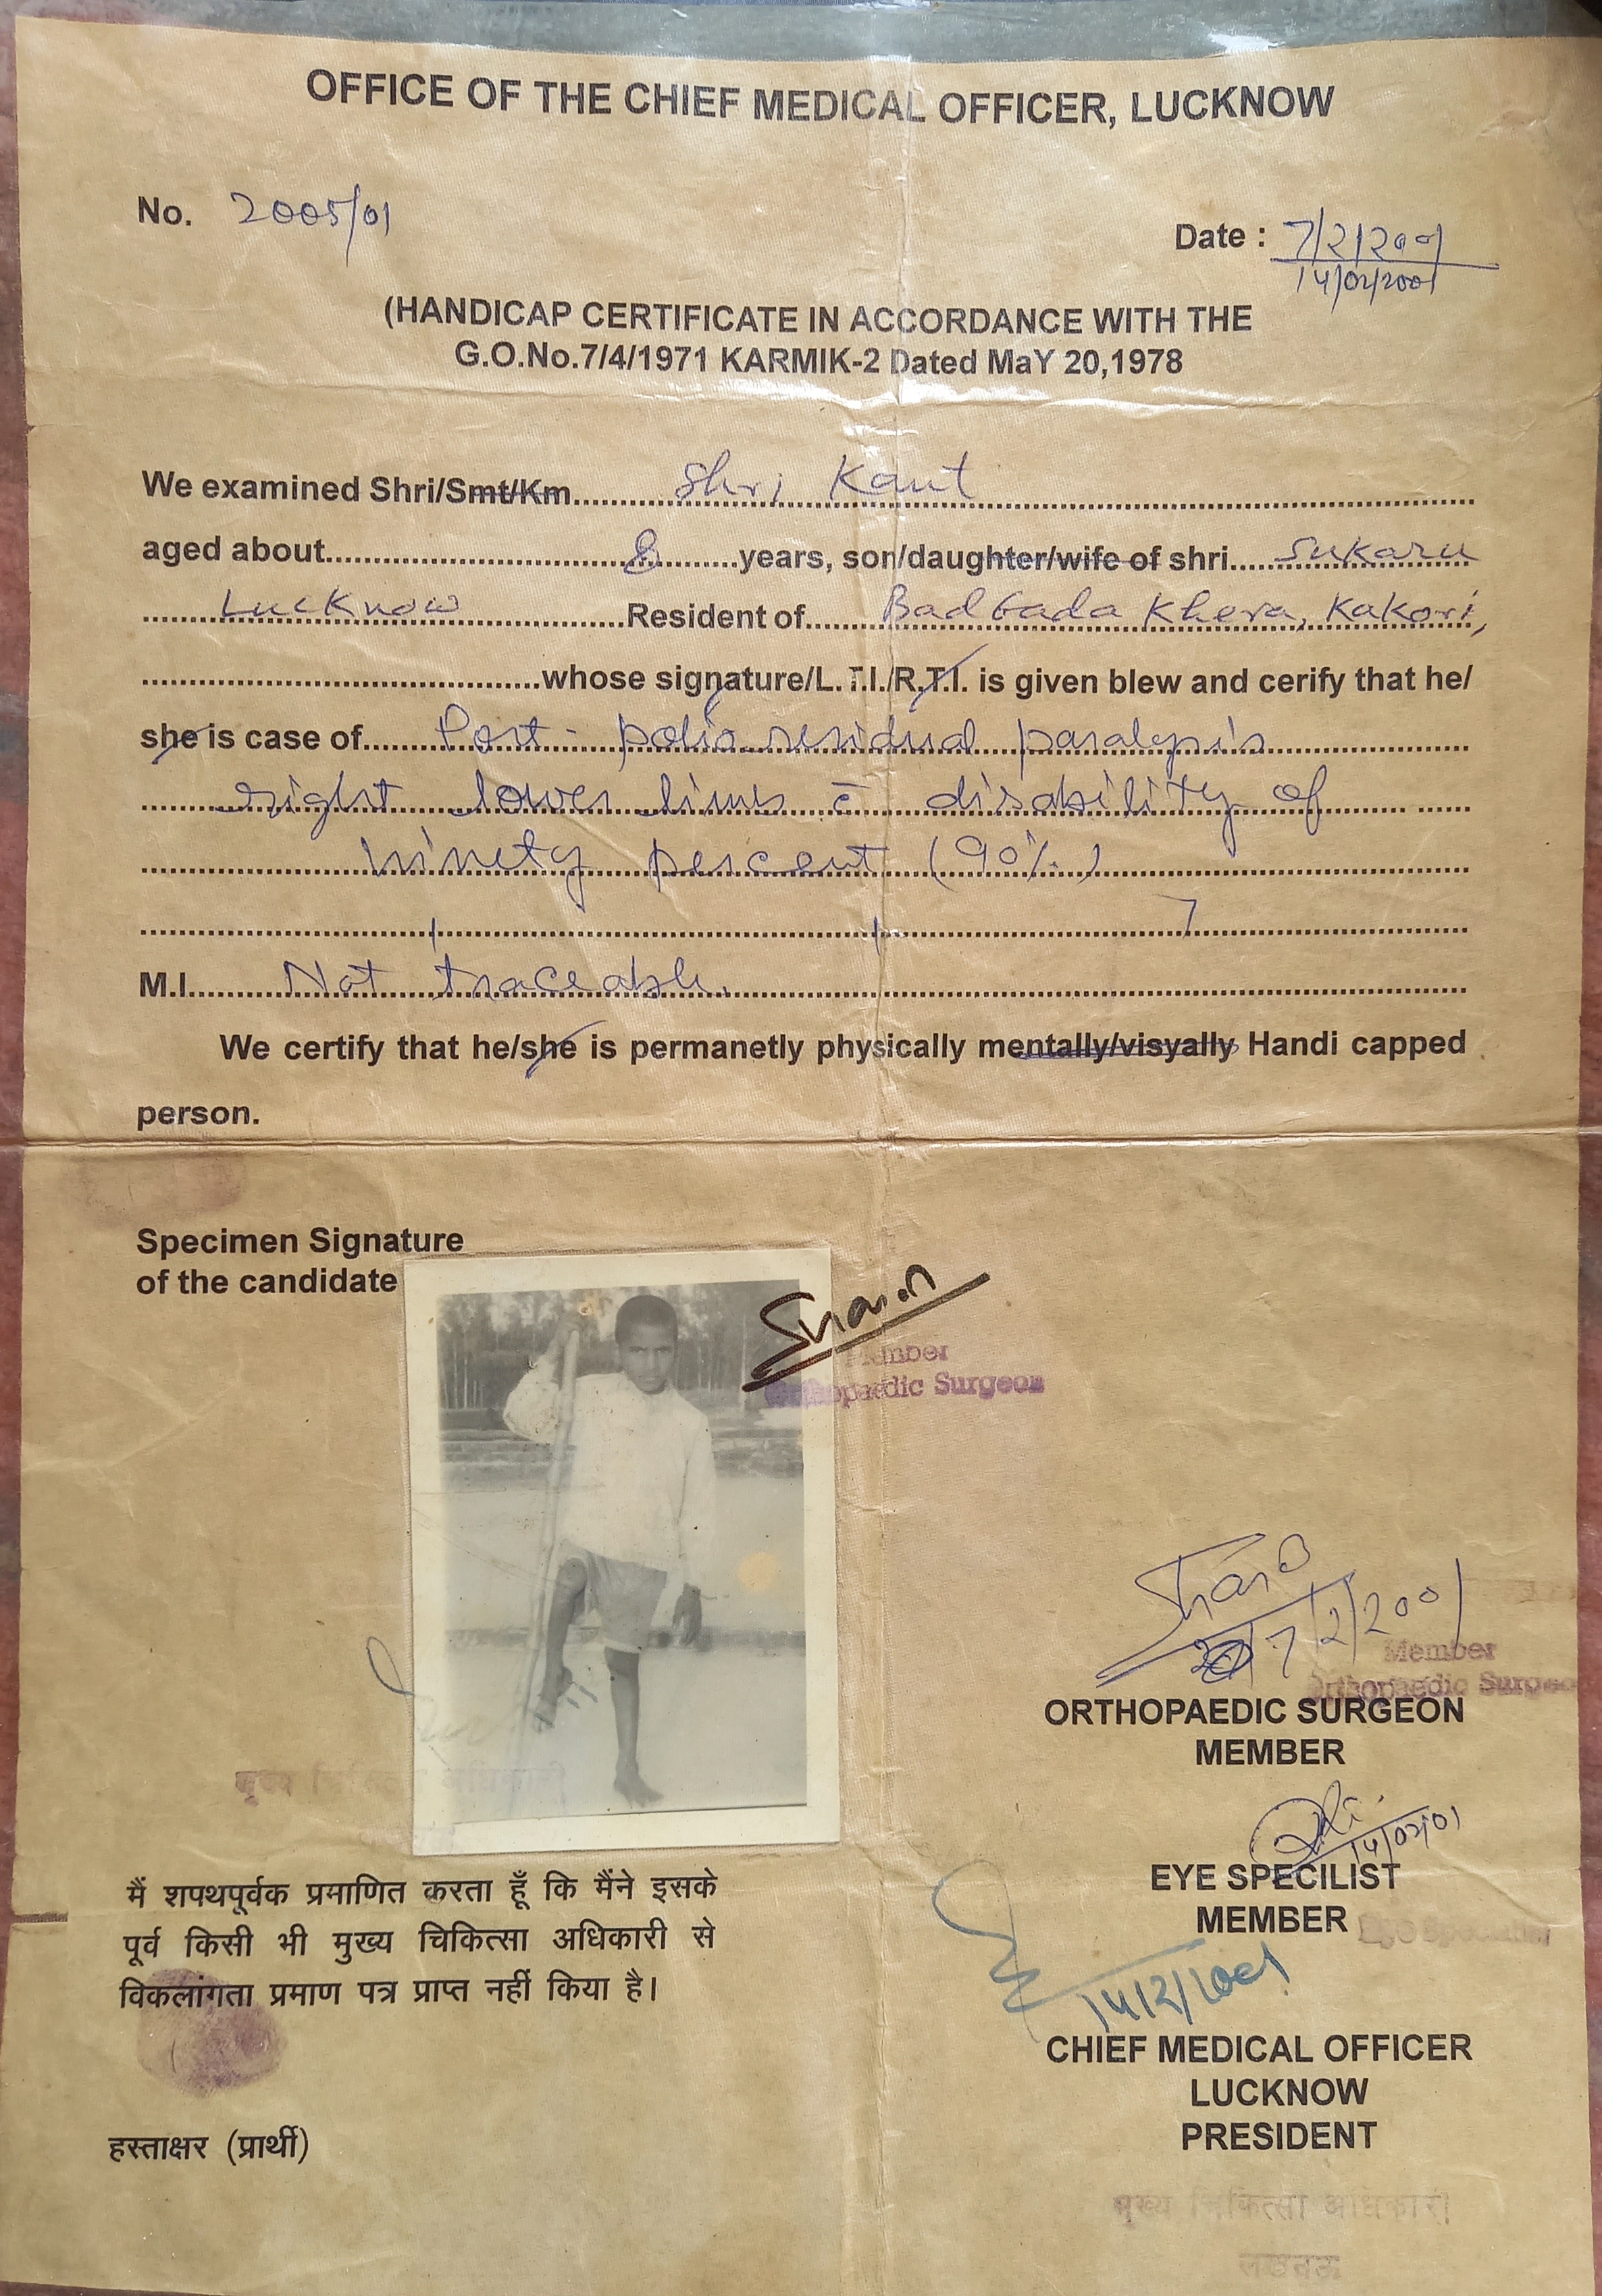 OFFICE OF THE CHIEF MEDICAL OFFICER, LUCKNOW
No. 2005/01
Date : 7/2/2001
14/02/2001
(HANDICAP CERTIFICATE IN ACCORDANCE WITH THE
G.O.No.7/4/1971 KARMIK-2 Dated MaY 20,1978
We examined Shri/Smt/Km............Shri Kant............
aged about............8............years, son/daughter/wife of shri......Sukaru
......Lucknow............Resident of......Badgada Khera, Kakori,
............whose signature/L.T.I./R.T.I. is given blew and cerify that he/
she is case of......Post-polio residual paralysis
......right lower limb c̄ disability of......
............ninety percent (90%)............
M.I.......Not traceable.
We certify that he/she is permanetly physically mentally/visyally Handi capped
person.
Specimen Signature
of the candidate
Member
Orthopaedic Surgeon
7/2/2001
Member
Orthopaedic Surgeon
ORTHOPAEDIC SURGEON
MEMBER
14/02/01
EYE SPECILIST
MEMBER
Eye Specialist
14/2/2001
CHIEF MEDICAL OFFICER
LUCKNOW
PRESIDENT
मुख्य चिकित्सा अधिकारी
लखनऊ
मुख्य चिकित्सा अधिकारी
मैं शपथपूर्वक प्रमाणित करता हूँ कि मैंने इसके
पूर्व किसी भी मुख्य चिकित्सा अधिकारी से
विकलांगता प्रमाण पत्र प्राप्त नहीं किया है।
हस्ताक्षर (प्रार्थी)